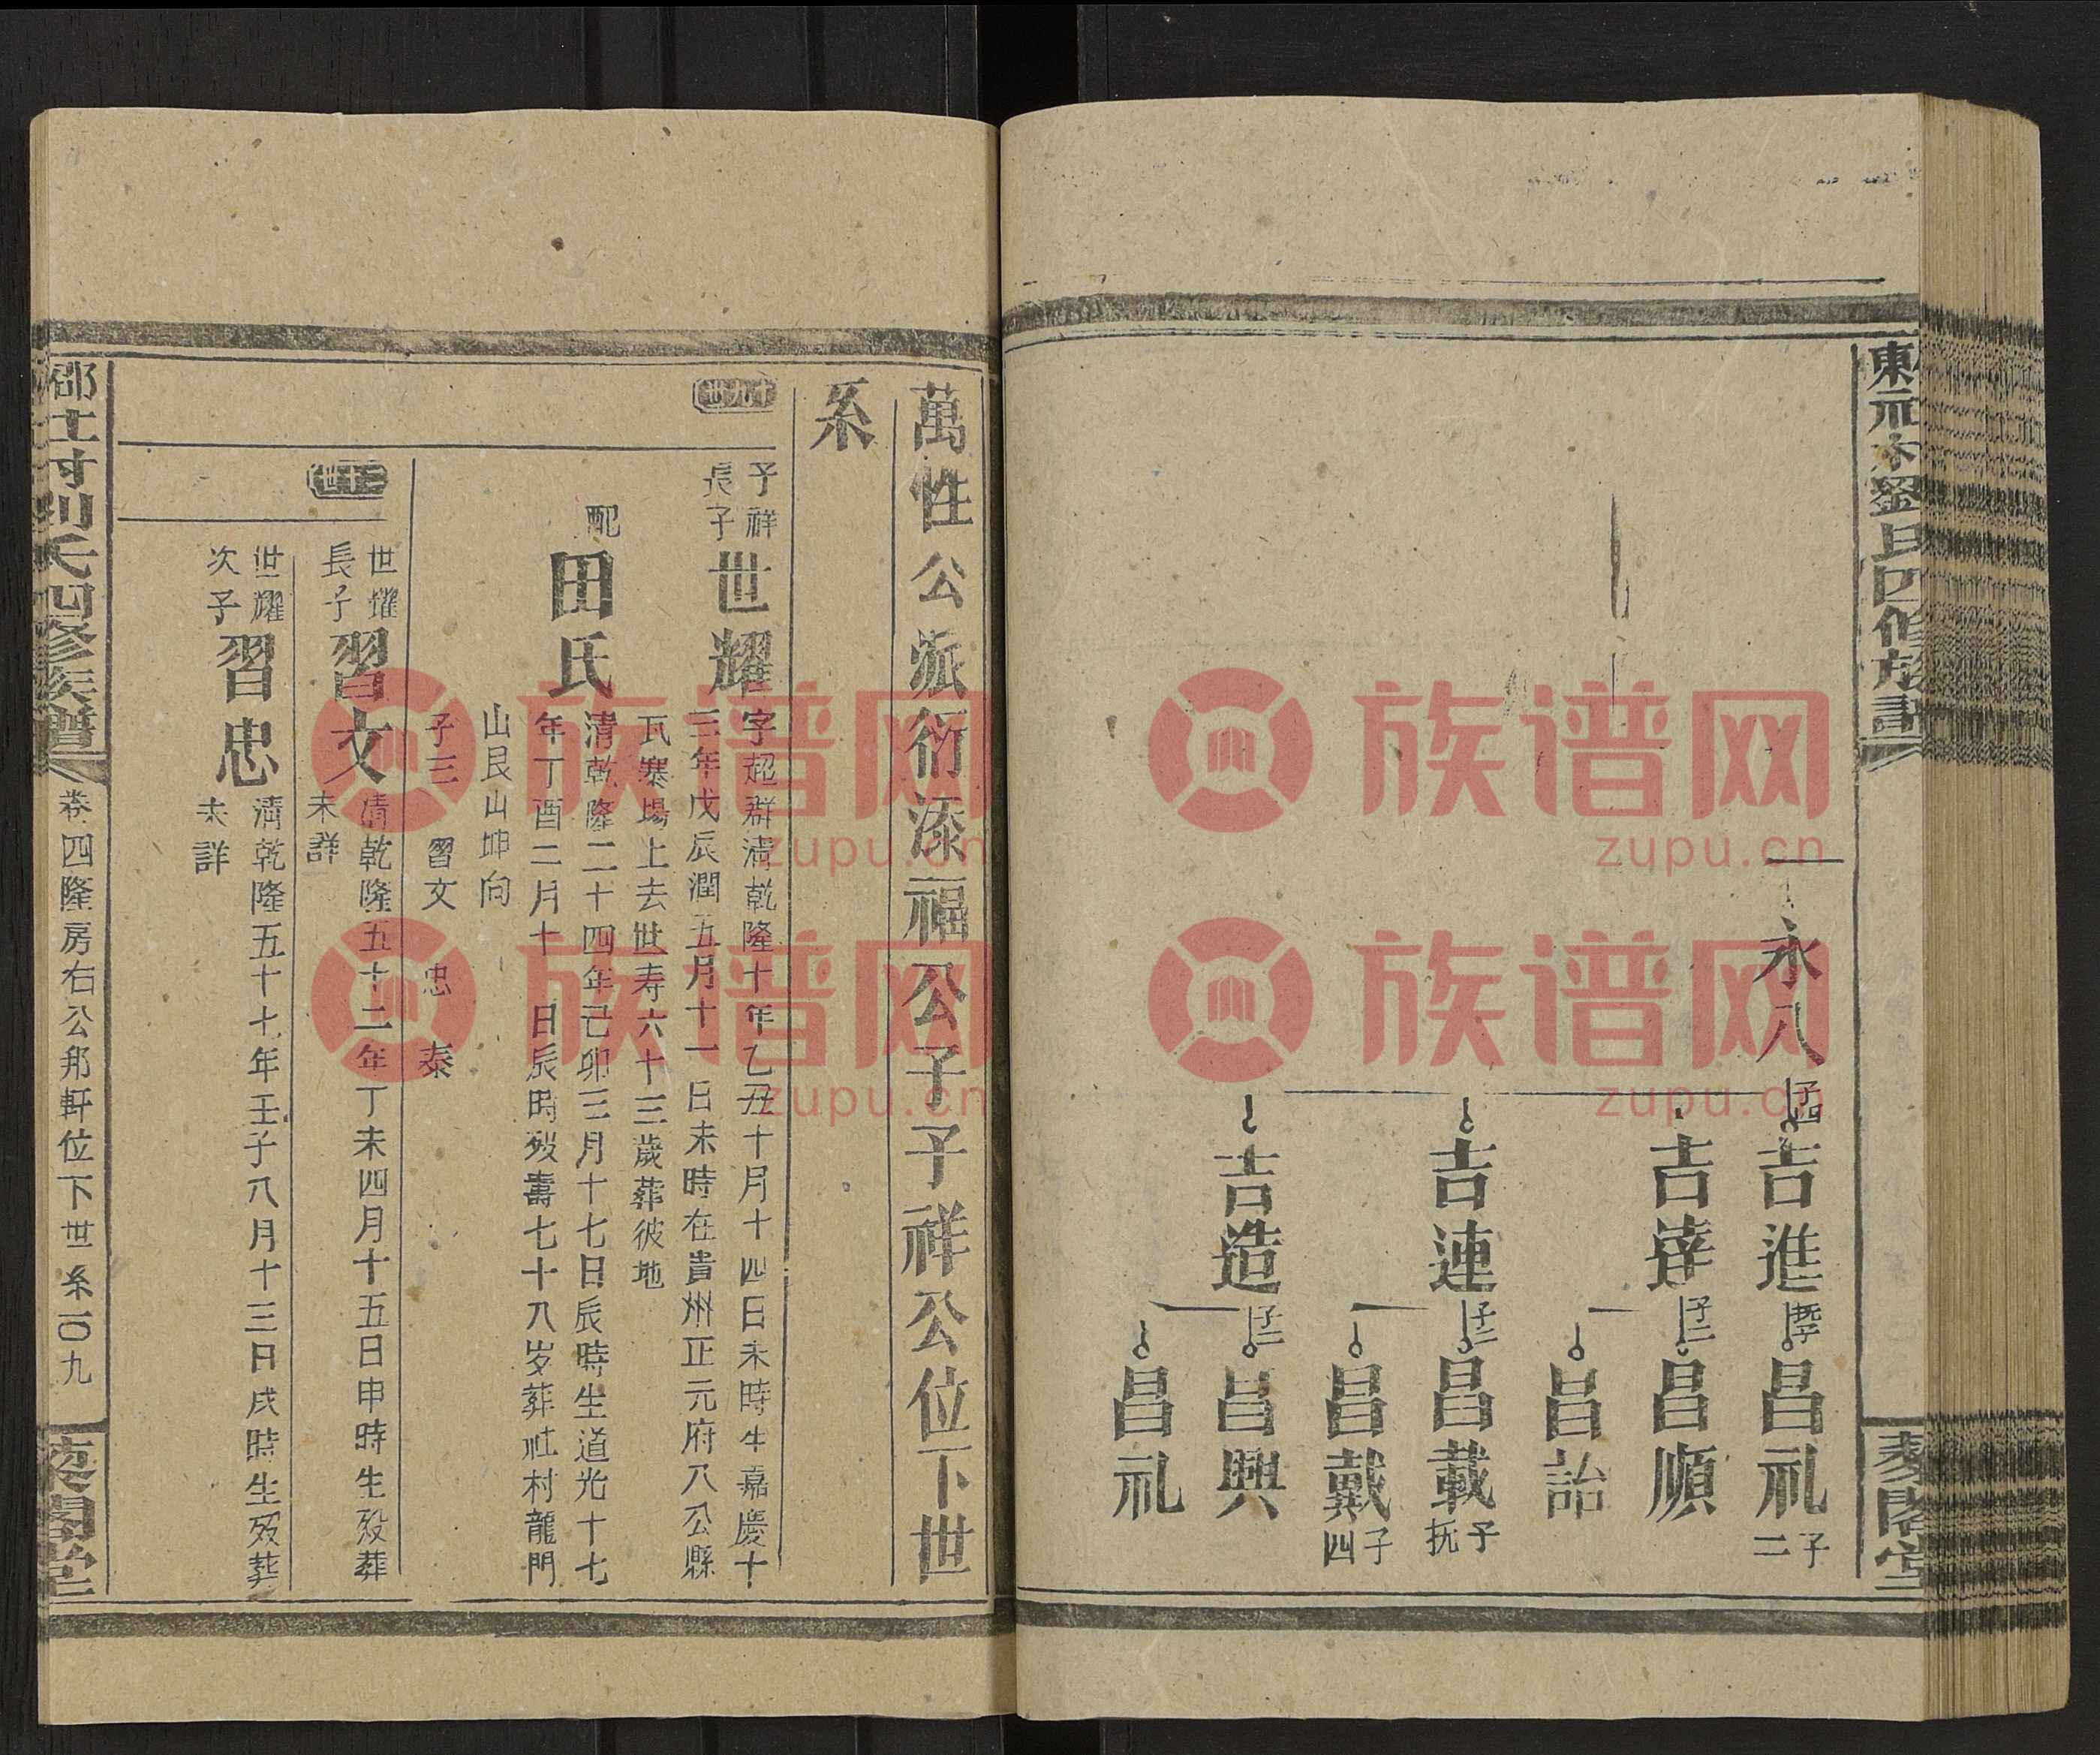 永八 子四
吉進
吉達 子二
吉連 子二
吉造 子二
昌礼 子二
昌順
昌詒
昌載 子抚
昌戴 子四
昌興
昌礼
萬性公派衍漆福公子子祥公位下世
系
十九世
子祥
長子
世耀
字超群清乾隆十年乙丑十月十四日未時生嘉慶十
三年戊辰潤五月十一日未時在貴州正元府八公縣
瓦寨場上去世寿六十三歲葬彼地
配
田氏
清乾隆二十四年己卯三月十七日辰時生道光十七
年丁酉二月十 日辰時殁壽七十八岁葬社村龍門
山艮山坤向
子三 習文 忠 泰
世耀
長子
習文
清乾隆五十二年丁未四月十五日申時生殁葬
未詳
世耀
次子
習忠
清乾隆五十七年壬子八月十三日戌時生殁葬
未詳
卷四隆房右公邦軒位下世系一〇九
族谱网
zupu.cn
族谱网
zupu.cn
族谱网
zupu.cn
族谱网
zupu.cn